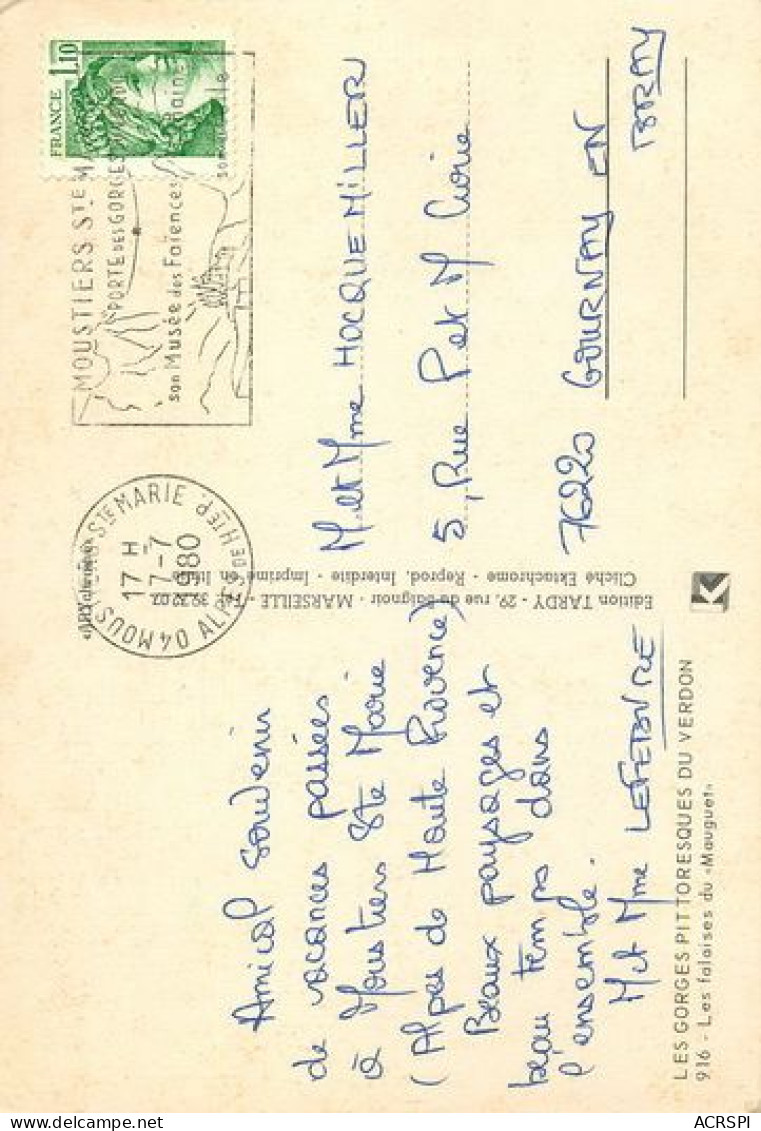 Amical souvenir
de vacances passées
à Moustiers Ste Marie
(Alpes de Haute Provence)
Beaux paysages et
beau temps dans
l'ensemble.
M et Mme LEFEBVRE
LES GORGES PITTORESQUES DU VERDON
916 - Les falaises du «Mauguet»
Edition TARDY - 29, rue du Baignoir - MARSEILLE - Tél. 39.22.02
Cliché Ektachrome - Reprod. Interdite - Imprimé en Italie
K
04 MOUSTIERS STE MARIE
ALPES DE HTE P.
17 H
17-7
1980
MOUSTIERS STE MA
PORTE DES GORGES
son Musée des Faïences
FRANCE 1,10
M et Mme HOCQUEMILLER
5, Rue P et M Curie
76220 GOURNAY EN
BRAY
ACRSPI